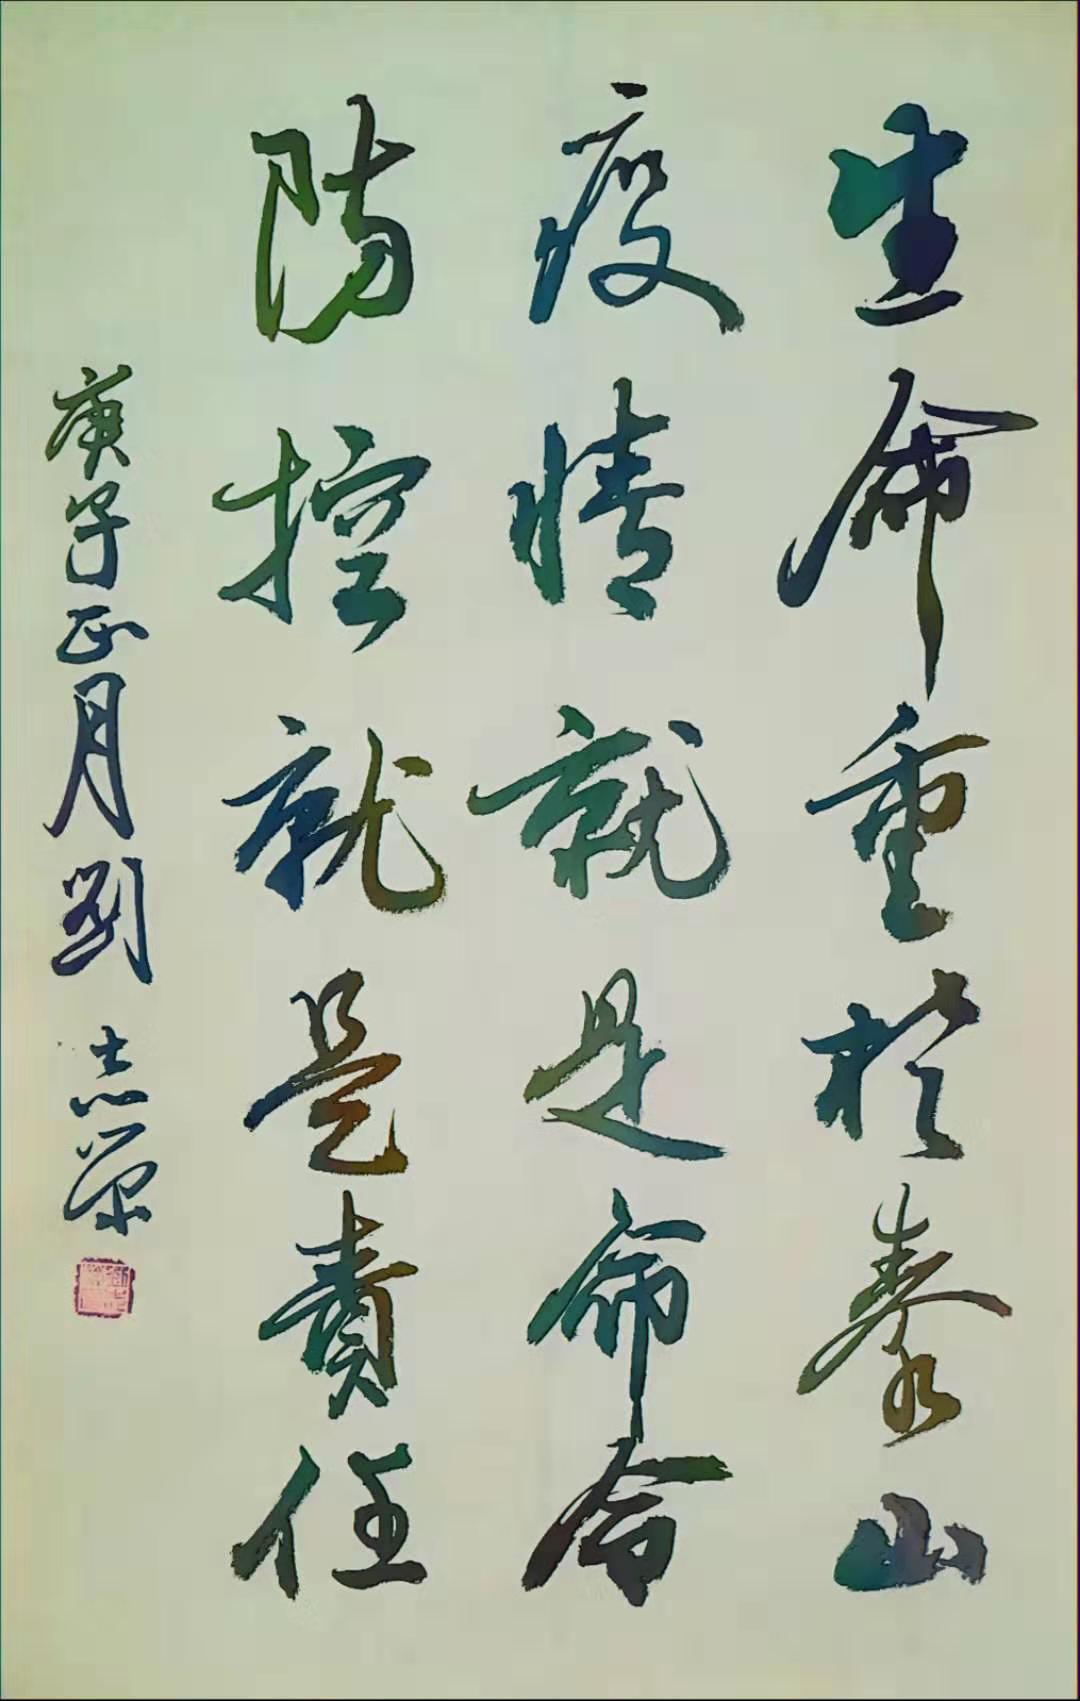 生命重於泰山
疫情就是命令
防控就是責任
庚子正月劉志榮